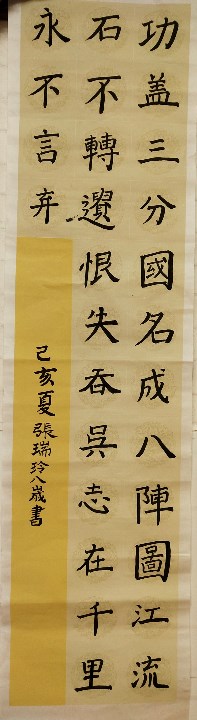 功盖三分國名成八陣圖江流
石不轉遺恨失吞吳志在千里
永不言弃
己亥夏張瑞玲八歲書